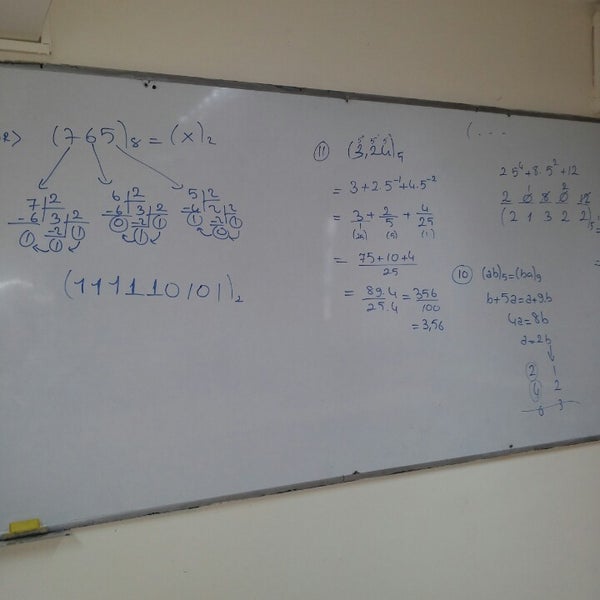 (765)₈ = (x)₂
7 | 2
-6 | 3 | 2
1 -2 1
1
6 | 2
-6 | 3 | 2
0 -2 1
1
5 | 2
-4 | 2 | 2
1 -2 1
0
(111110101)₂
11 (3,24)₅
= 3 + 2.5⁻¹ + 4.5⁻²
= 3 + 2/5 + 4/25
(25) (5) (1)
= 75+10+4 / 25
= 89.4 / 25.4 = 356 / 100
= 3,56
(...
2 5⁴ + 8.5² + 12
2 0 8 0 12
(2 1 3 2 2)₅
10 (ab)₅ = (ba)₉
b+5a = a+9b
4a = 8b
a = 2b
2 1
4 2
6 3